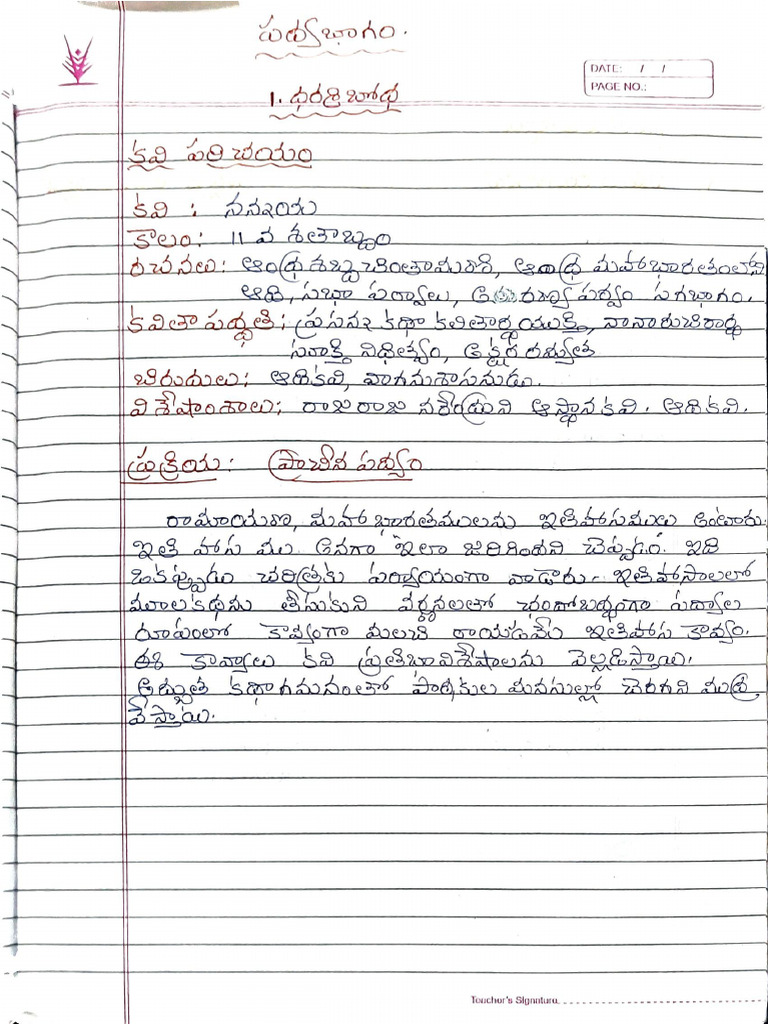 పద్యభాగం.
DATE: / /
PAGE NO.:
1. ధర్మబోధ
కవి పరిచయం
కవి : నన్నయ
కాలం: 11 వ శతాబ్దం
రచనలు: ఆంధ్రశబ్దచింతామణి, ఆంధ్ర మహాభారతంలోని
ఆది, సభా పర్వాలు, అరణ్య పర్వం సగభాగం.
కవితా పద్ధతి: ప్రసన్న కథా కలితార్థయుక్తి, నానారుచిరార్థ
సూక్తి నిధిత్వం, అక్షర రమ్యత
బిరుదులు: ఆదికవి, వాగనుశాసనుడు.
విశేషాంశాలు: రాజరాజ నరేంద్రుని ఆస్థానకవి. ఆదికవి.
ప్రక్రియ: ప్రాచీన పద్యం
రామాయణ, మహాభారతములను ఇతిహాసములు అంటారు.
ఇతి హాస ము అనగా ఇలా జరిగిందని చెప్పడం. ఇది
ఒకప్పుడు చరిత్రకు పర్యాయంగా వాడారు. ఇతిహాసాలలో
మూలకథను తీసుకుని వర్ణనలతో ఛందోబద్ధంగా పద్యాల
రూపంలో కావ్యంగా మలచి రాయడమే ఇతిహాస కావ్యం.
ఈ కావ్యాలు కవి ప్రతిభావిశేషాలను వెల్లడిస్తాయి.
అద్భుత కథాగమనంతో పాఠకుల మనసుల్లో చెరగని ముద్ర
వేస్తాయి.
Teacher's Signature